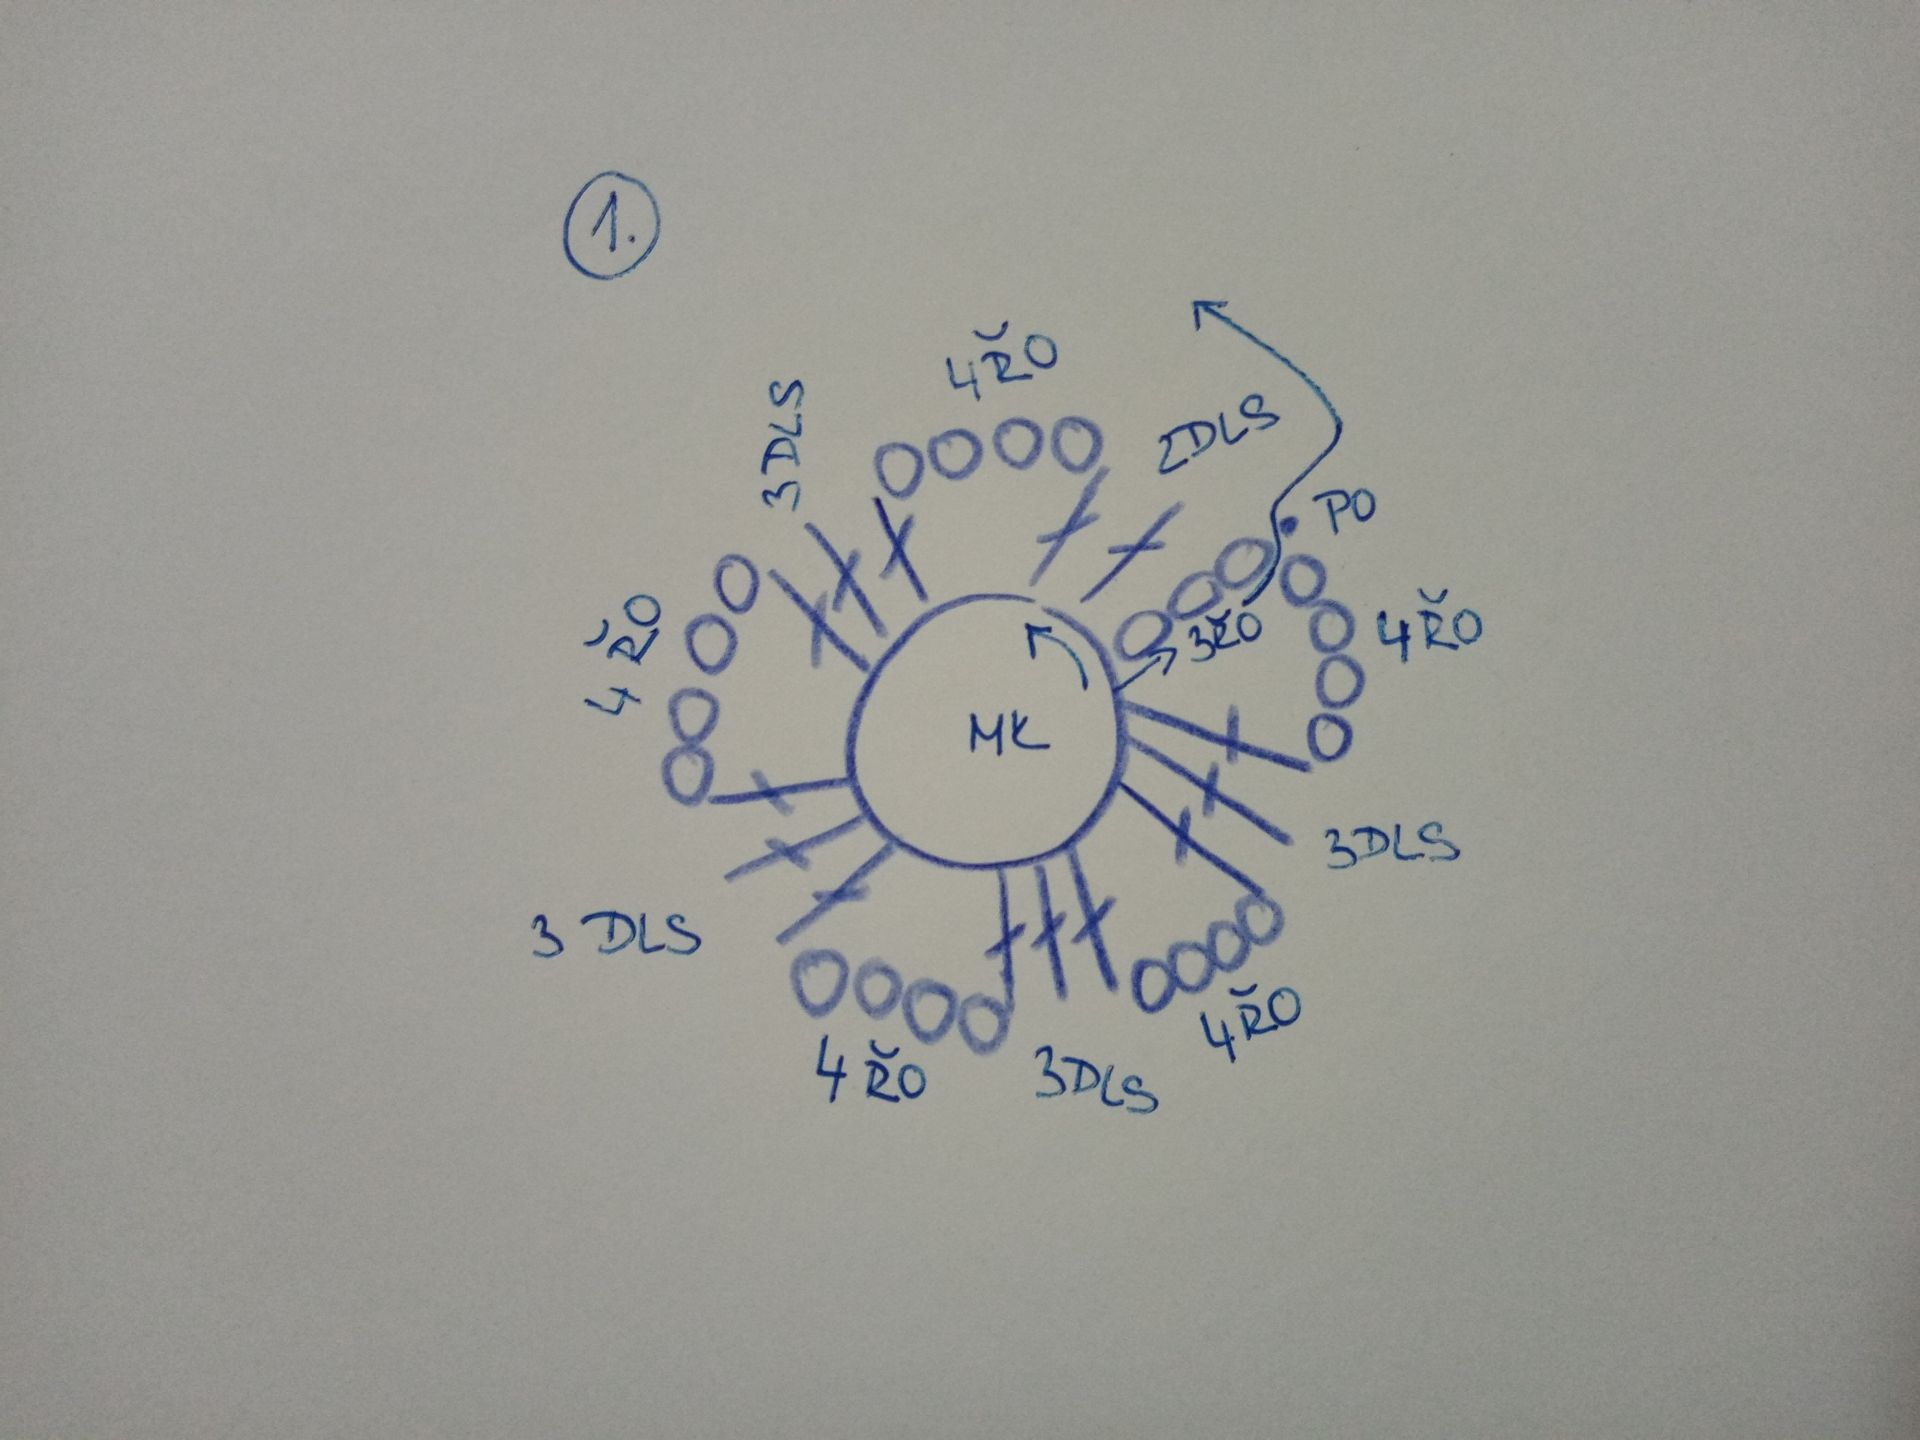 1.
4ŘO
3DLS
2DLS
PO
4ŘO
3ŘO
4ŘO
MK
3DLS
3 DLS
4ŘO
4ŘO
3DLS